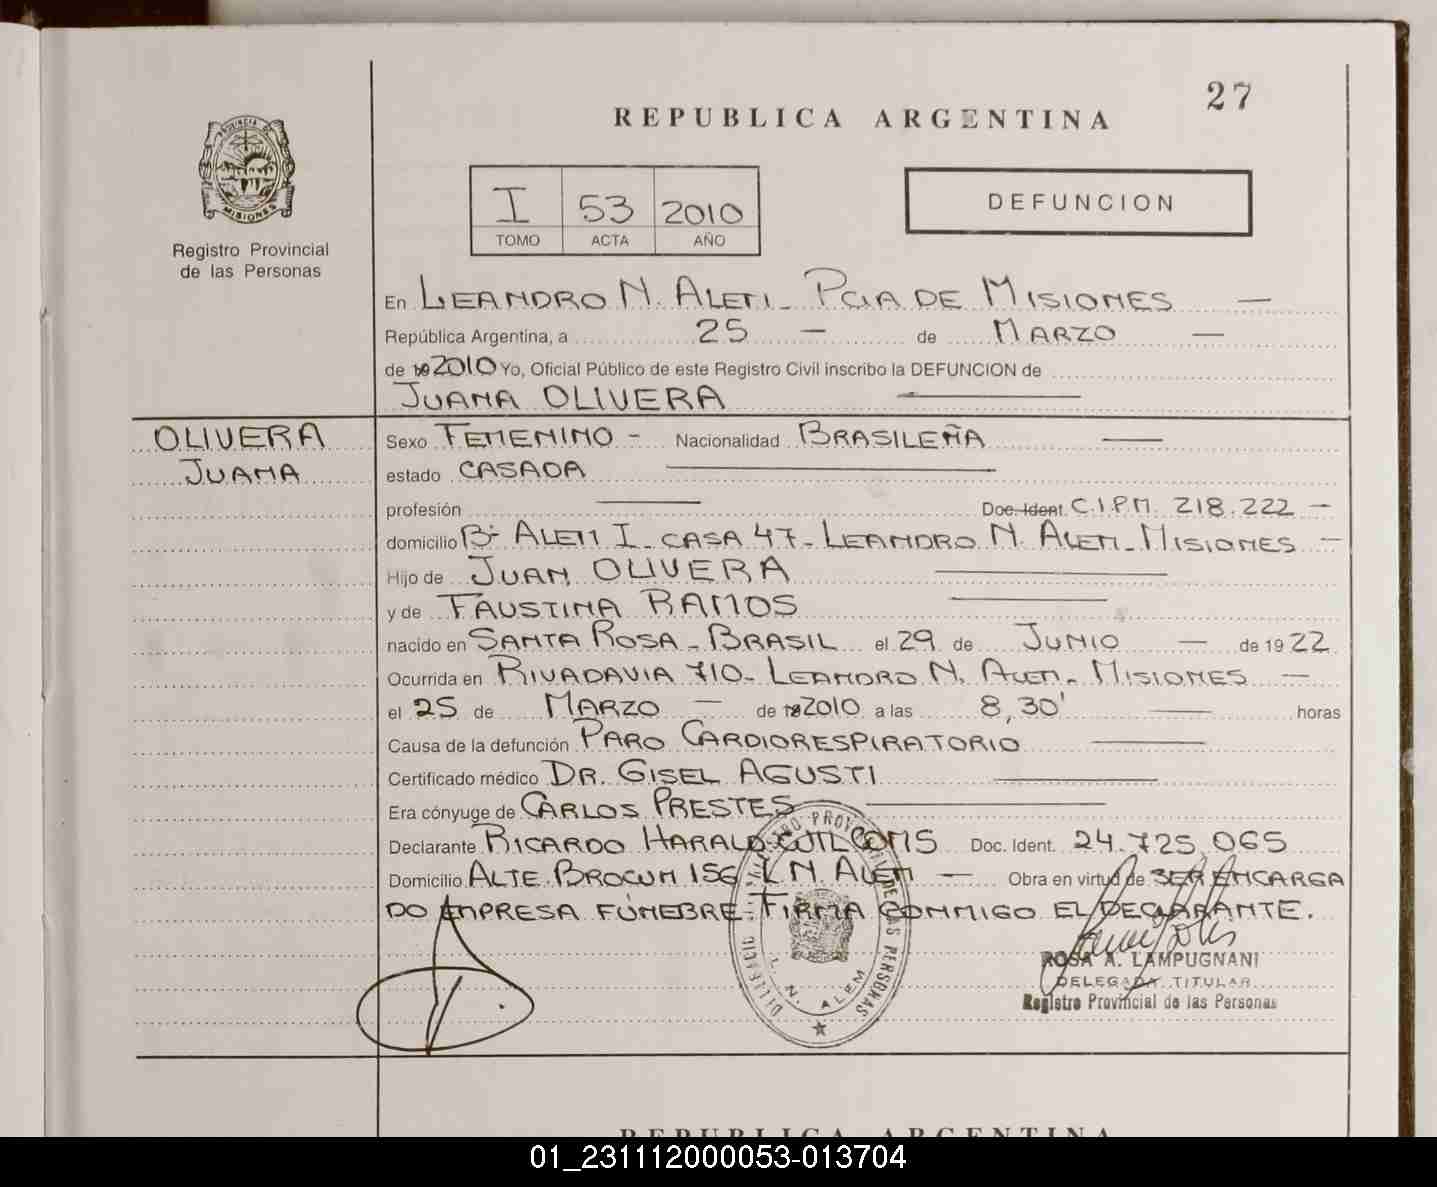 27
REPUBLICA ARGENTINA
PROVINCIA DE
MISIONES
Registro Provincial
de las Personas
I 53 2010
TOMO ACTA AÑO
DEFUNCION
En LEANDRO N. ALEM - PCIA DE MISIONES —
República Argentina, a 25 — de MARZO —
de 192010 Yo, Oficial Público de este Registro Civil inscribo la DEFUNCION de
JUANA OLIVERA —
OLIVERA
JUANA
Sexo FEMENINO - Nacionalidad BRASILEÑA —
estado CASADA —
profesión — Doc. Ident. C.I.P.M. 218.222 —
domicilio Bº ALEM I - CASA 47 - LEANDRO N. ALEM - MISIONES —
Hijo de JUAN OLIVERA —
y de FAUSTINA RAMOS —
nacido en SANTA ROSA - BRASIL el 29 de JUNIO — de 1922
Ocurrida en RIVADAVIA 710 - LEANDRO N. ALEM - MISIONES —
el 25 de MARZO — de 192010 a las 8,30' — horas
Causa de la defunción PARO CARDIORESPIRATORIO —
Certificado médico DR. GISEL AGUSTI —
Era cónyuge de CARLOS PRESTES —
Declarante RICARDO HARALD Doc. Ident. 24.725.065
Domicilio ALTE. BROWN 156 - L N. ALEM — Obra en virtud de SER ENCARGA
DO EMPRESA FÚNEBRE - FIRMA CONMIGO EL DECLARANTE.
L. N. ALEM
ROSA A. LAMPUGNANI
DELEGADA TITULAR
Registro Provincial de las Personas
REPUBLICA ARGENTINA
01_231112000053-013704